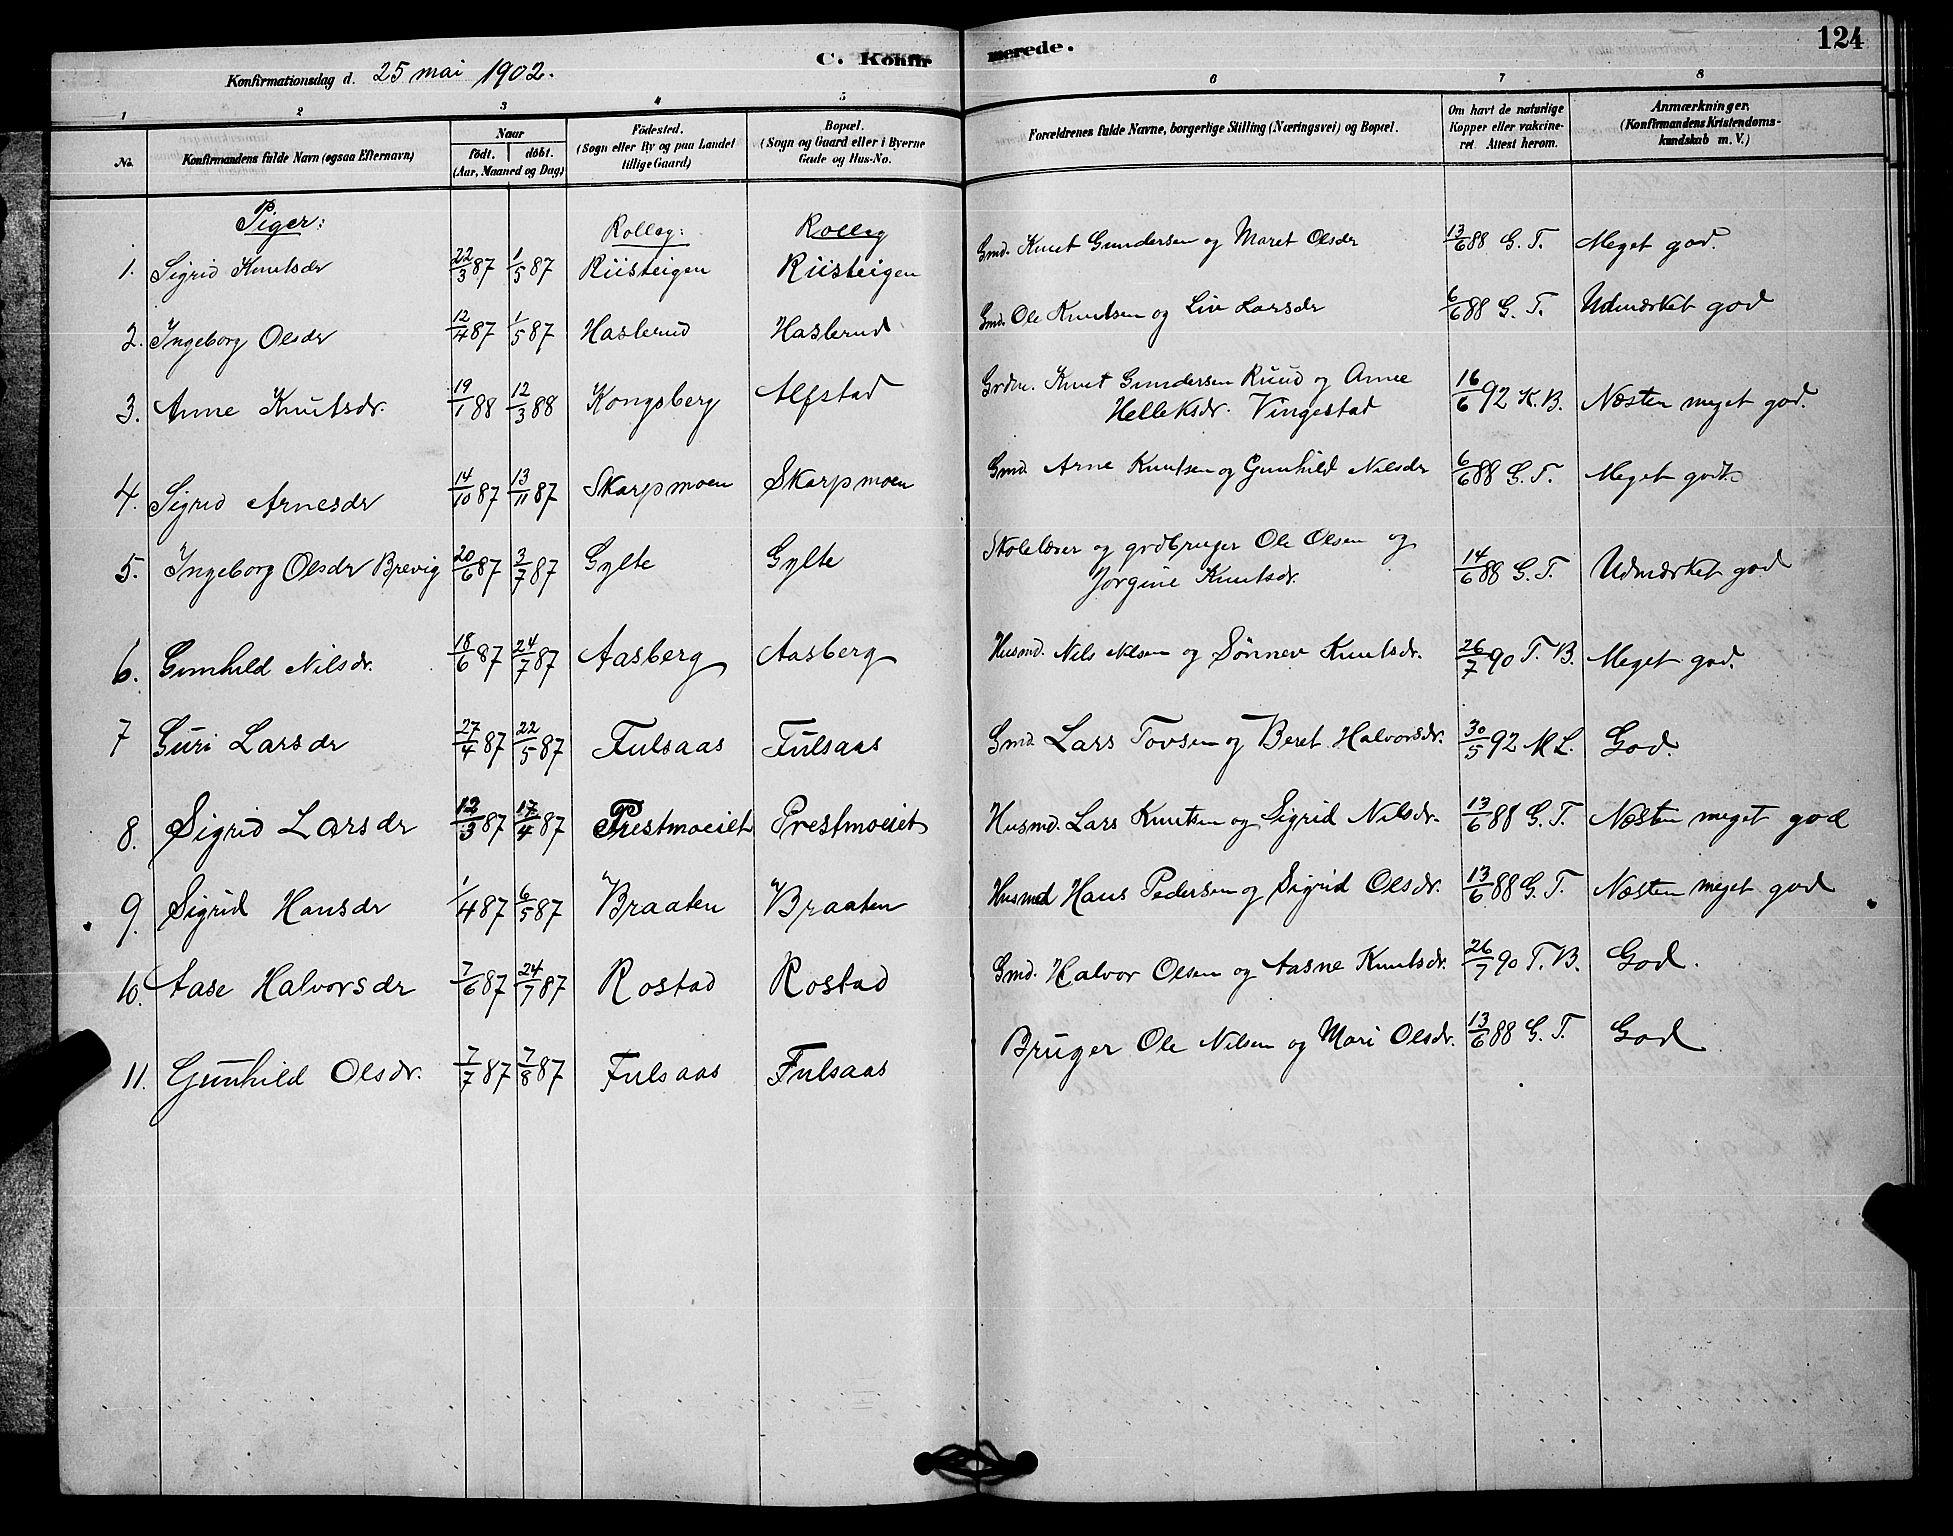 124
C. Konfirmerede.
Konfirmationsdag d. 25 mai 1902.
1 2 3 4 5 6 7 8
No. Konfirmandens fulde Navn (ogsaa Efternavn) Naar født. døbt. (Aar, Maaned og Dag) Fødested. (Sogn eller By og paa Landet tillige Gaard) Bopæl. (Sogn og Gaard eller i Byerne Gade og Hus-No. Forældrenes fulde Navne, borgerlige Stilling (Næringsvei) og Bopæl. Om havt de naturlige Kopper eller vakcineret. Attest herom. Anmærkninger. (Konfirmandens Kristendomskundskab m. V.)
Piger: Rollag: Rollag
1. Sigrid Knutsdr 22/3 87 1/5 87 Riisteigen Riisteigen Gmd. Knut Gundersen og Maret Olsdr 13/6 88 G. T. Meget god.
2. Ingeborg Olsdr 12/4 87 1/5 87 Haslerud Haslerud Gmd. Ole Knutsen og Liv Larsdr 6/6 88 G. T. Udmærket god
3. Anne Knutsdr. 19/1 88 12/3 88 Kongsberg Alfstad Grdm. Knut Gundersen Ruud og Anne
Helleksdr. Vingestad 16/6 92 K. B. Næsten meget god.
4. Sigrid Arnesdr 14/10 87 13/11 87 Skarpmoen Skarpmoen Gmd. Arne Knutsen og Gunhild Nilsdr 6/6 88 G. T. Meget godt.
5. Ingeborg Olsdr Brevig 20/6 87 3/7 87 Gylte Gylte Skolelærer og grdbruger Ole Olsen og
Jørgine Knutsdr. 14/6 88 G. T. Udmærket god
6. Gunhild Nilsdr. 18/6 87 24/7 87 Aasberg Aasberg Husmd. Nils Nilsen og Sønnev Knutsdr. 26/7 90 T. B. Meget god.
7 Guri Larsdr 27/4 87 22/5 87 Fulsaas Fulsaas Gmd. Lars Tovsen og Beret Halvorsdr. 30/5 92 M L. God.
8. Sigrid Larsdr 12/3 87 17/4 87 Prestmoeiet Prestmoeiet Husmd. Lars Knutsen og Sigrid Nilsdr. 13/6 88 G. T. Næsten meget god
9. Sigrid Hansdr 1/4 87 6/5 87 Braaten Braaten Husmd Hans Pedersen og Sigrid Olsdr. 13/6 88 G. T. Næsten meget god
10. Aase Halvorsdr 7/6 87 24/7 87 Rostad Rostad Gmd. Halvor Olsen og Aasne Knutsdr. 26/7 90 T. B. God.
11. Gunhild Olsdr. 7/7 87 7/8 87 Fulsaas Fulsaas Bruger Ole Nilsen og Mari Olsdr. 13/6 88 G. T. God